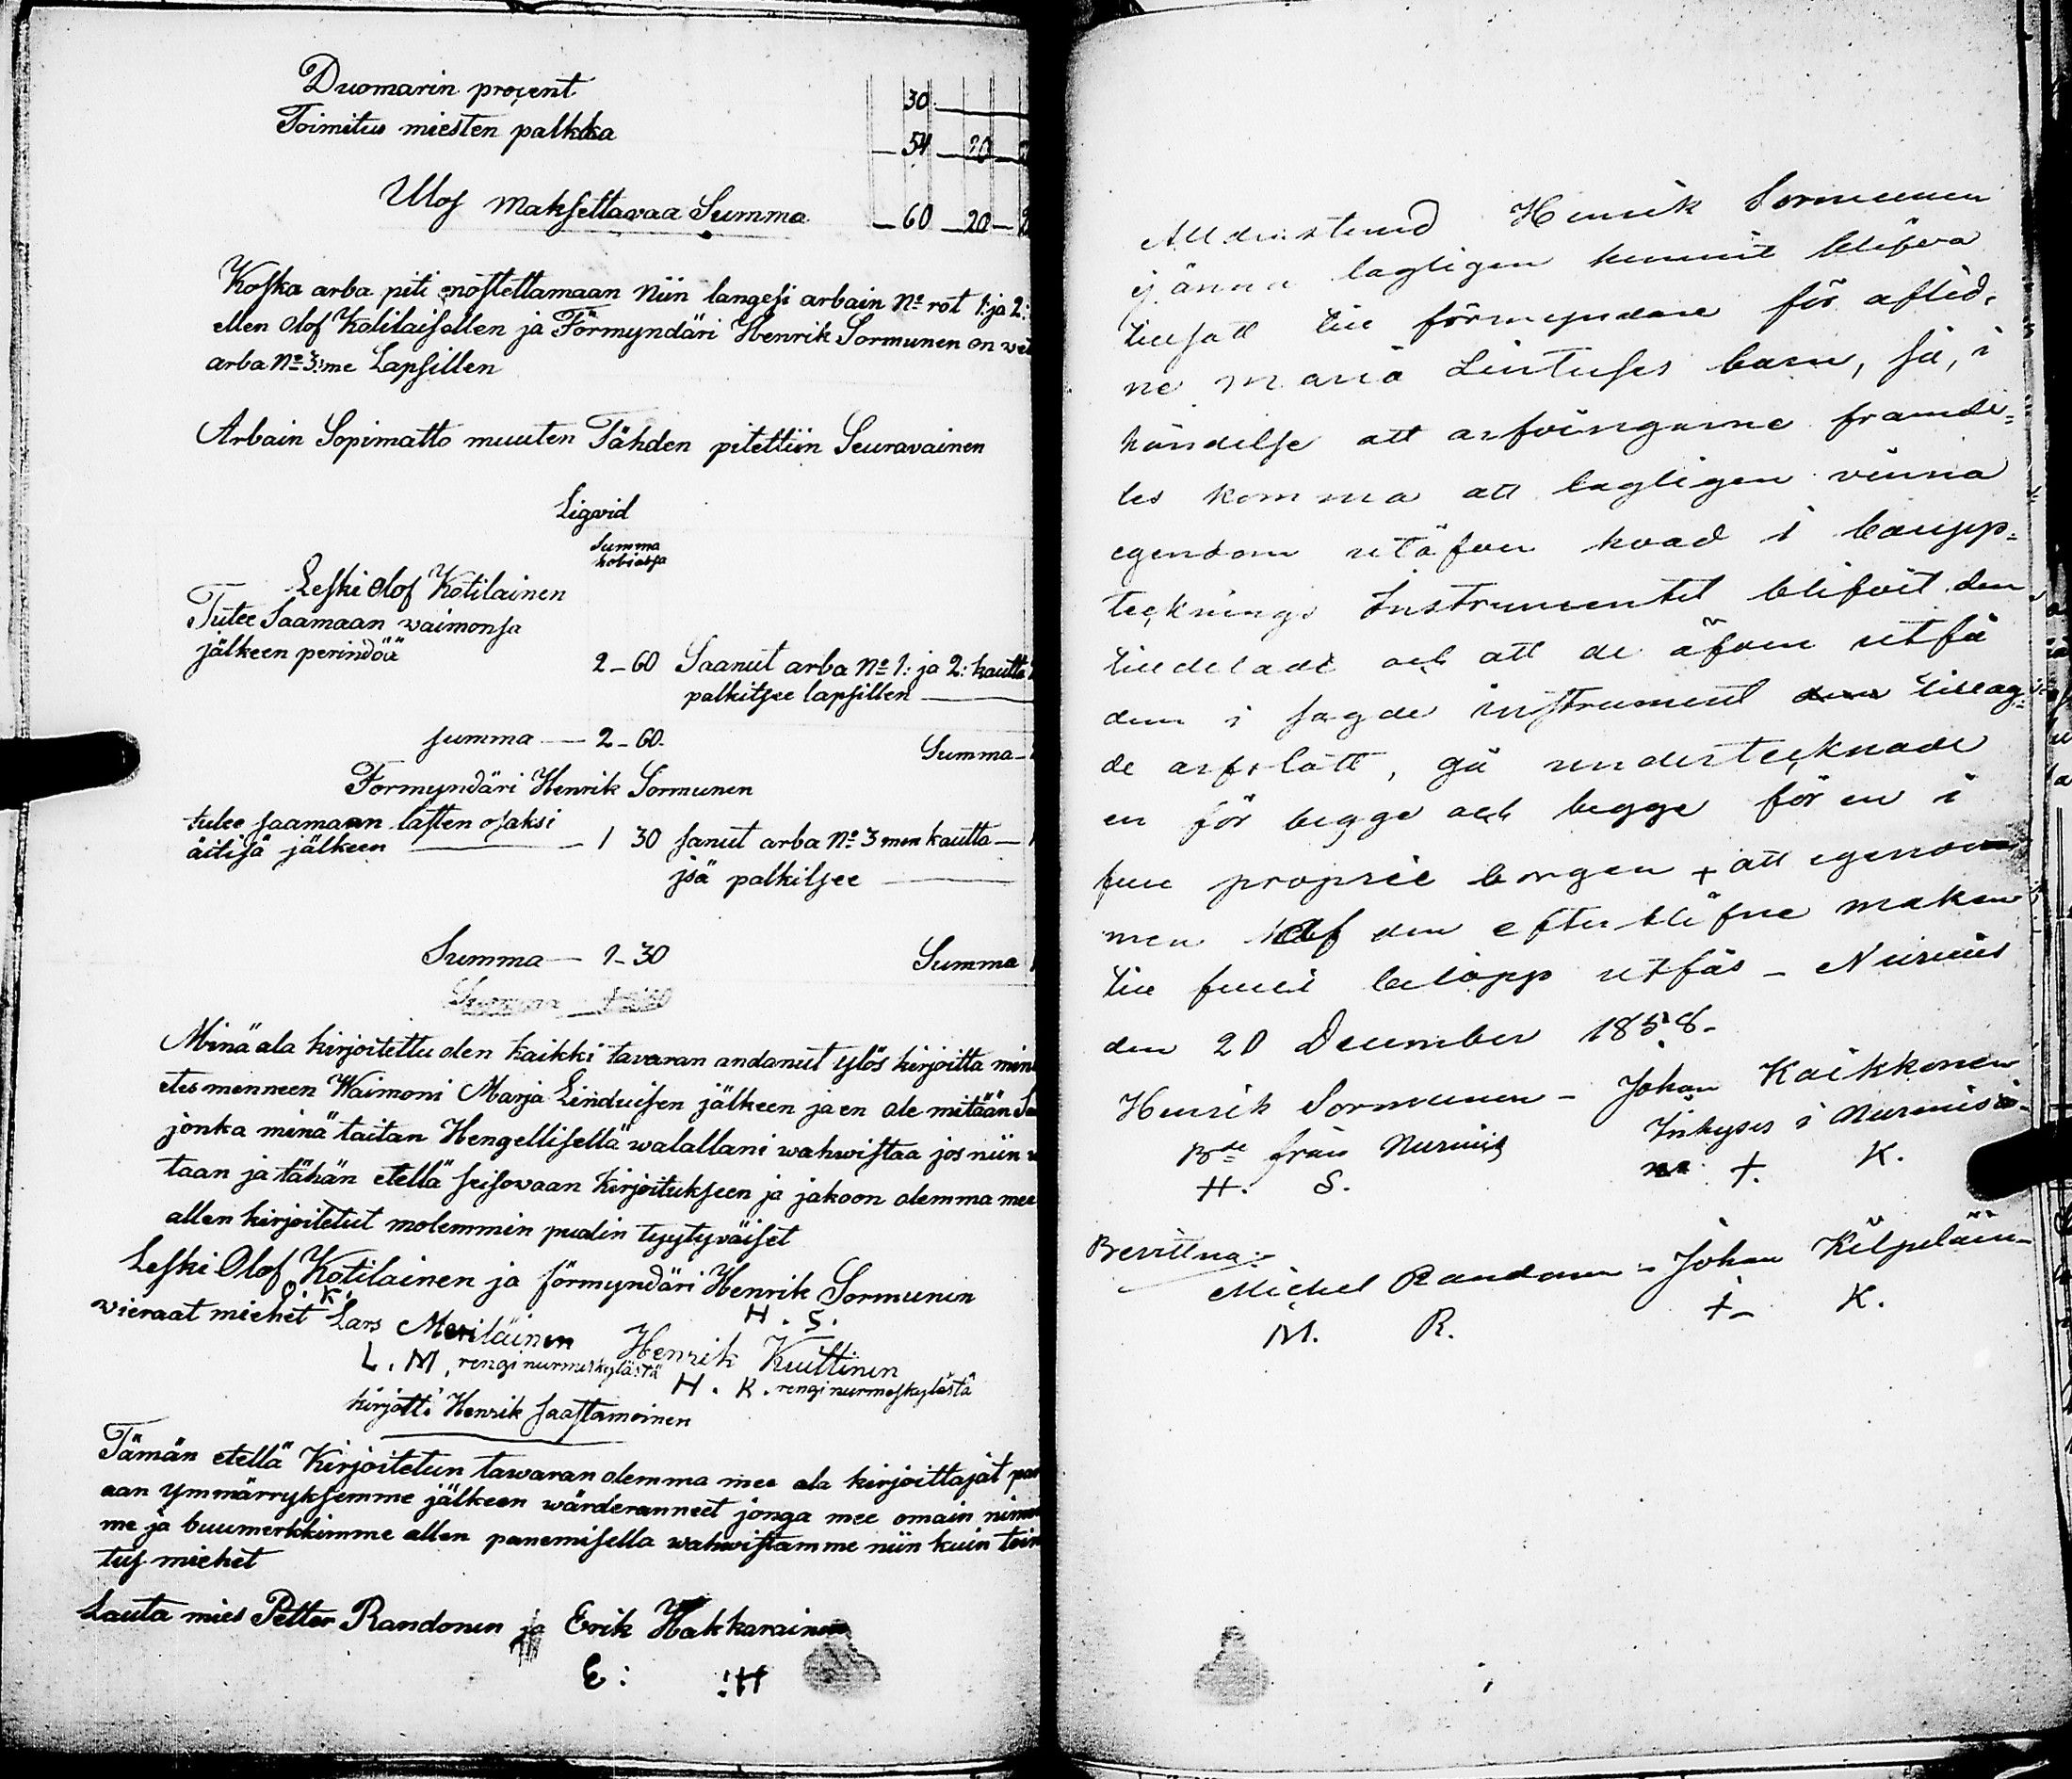 Duomarin proçent 30
Toimitus miesten palkka 54 20
Ulos maksettavaa Summa 60 20
Koska arba piti nostettamaan Niin langesi arbain No rot 1: ja 2:
ellen Olof Kotilaisellen ja Förmyndäri Henrik Sormunen on
arba No 3:me Lapsillen
Arbain Sopimatto muuten Tähden pitettiin Seuravainen
Liqvid
Summa
hobiassa
Leski Olof Kotilainen
Tulee Saamaan vaimonsa
jälkeen perindöä 2-60 Saanut arba No 1: ja 2: kautta
palkitsee lapsillen
summa 2-60. Summa
Formyndäri Henrik Sormunen
tulee saamaan lasten osaksi
äitisä jälkeen 1 30 sanut arba No 3 men kautta
jsä palkitsee
Summa 1-30 Summa
Minä ala kirjoitettu olen kaikki tavaran andanut ylös kirjoitta
etes menneen Waimoni Marja Linduisen jälkeen ja en ole mitään
jonka minä taitan Hengellisellä walallani wahwistaa jos niin
taan ja tähän etellä seisovaan kirjoitukseen ja jakoon olemma mee
allen kirjoitetut molemmin puolin tyytyväiset
Leski Olof Kotilainen ja förmyndäri Henrik Sormunen
O. K. H. S.
vieraat miehet Lars Meriläinen Henrik Kuittinen
L. M. rengi nurmeskylästä H. K. rengi nurmeskylästä
kirjotti Henrik Saastamoinen
Tämän etellä Kirjoitetun tawaran olemma mee ala kirjoittajat
aan ymmärryksemme jälkeen wärderanneet jonga mee omain
me ja buumerkkimme allen panemisella wahwistamme niin kuin
tus miehet
Lauta mies Petter Randonen ja Erik Hakkarainen
E: :H
Alldenstund Henrik Sormunen
ej ännu lagligen hunnit blifva
tillsatt till förmyndare för aflid-
ne Maria Lintuses barn, så, i
händelse att arfvingarne framde-
les komma att lagligen vinna
egendom utöfver hvad i boupp-
tecknings Instrumentet blifvit dem
tilldelade och att de äfven utfå
dem i sagde instrument tillag-
de arfslott, gå undertecknade
en för begge och begge för en i
full proprie borgen + att egendom
men af den efterblifne maken
till fullt belopp utfås - Nurmis
den 20 December 1858-
Henrik Sormunen - Johan Kaikkonen
Bde från Nurmis Inhyses i Nurmis
H. S. +. K.
Bevittna:
Michel Randonen - Johan Kilpeläin-
M. R. + K.